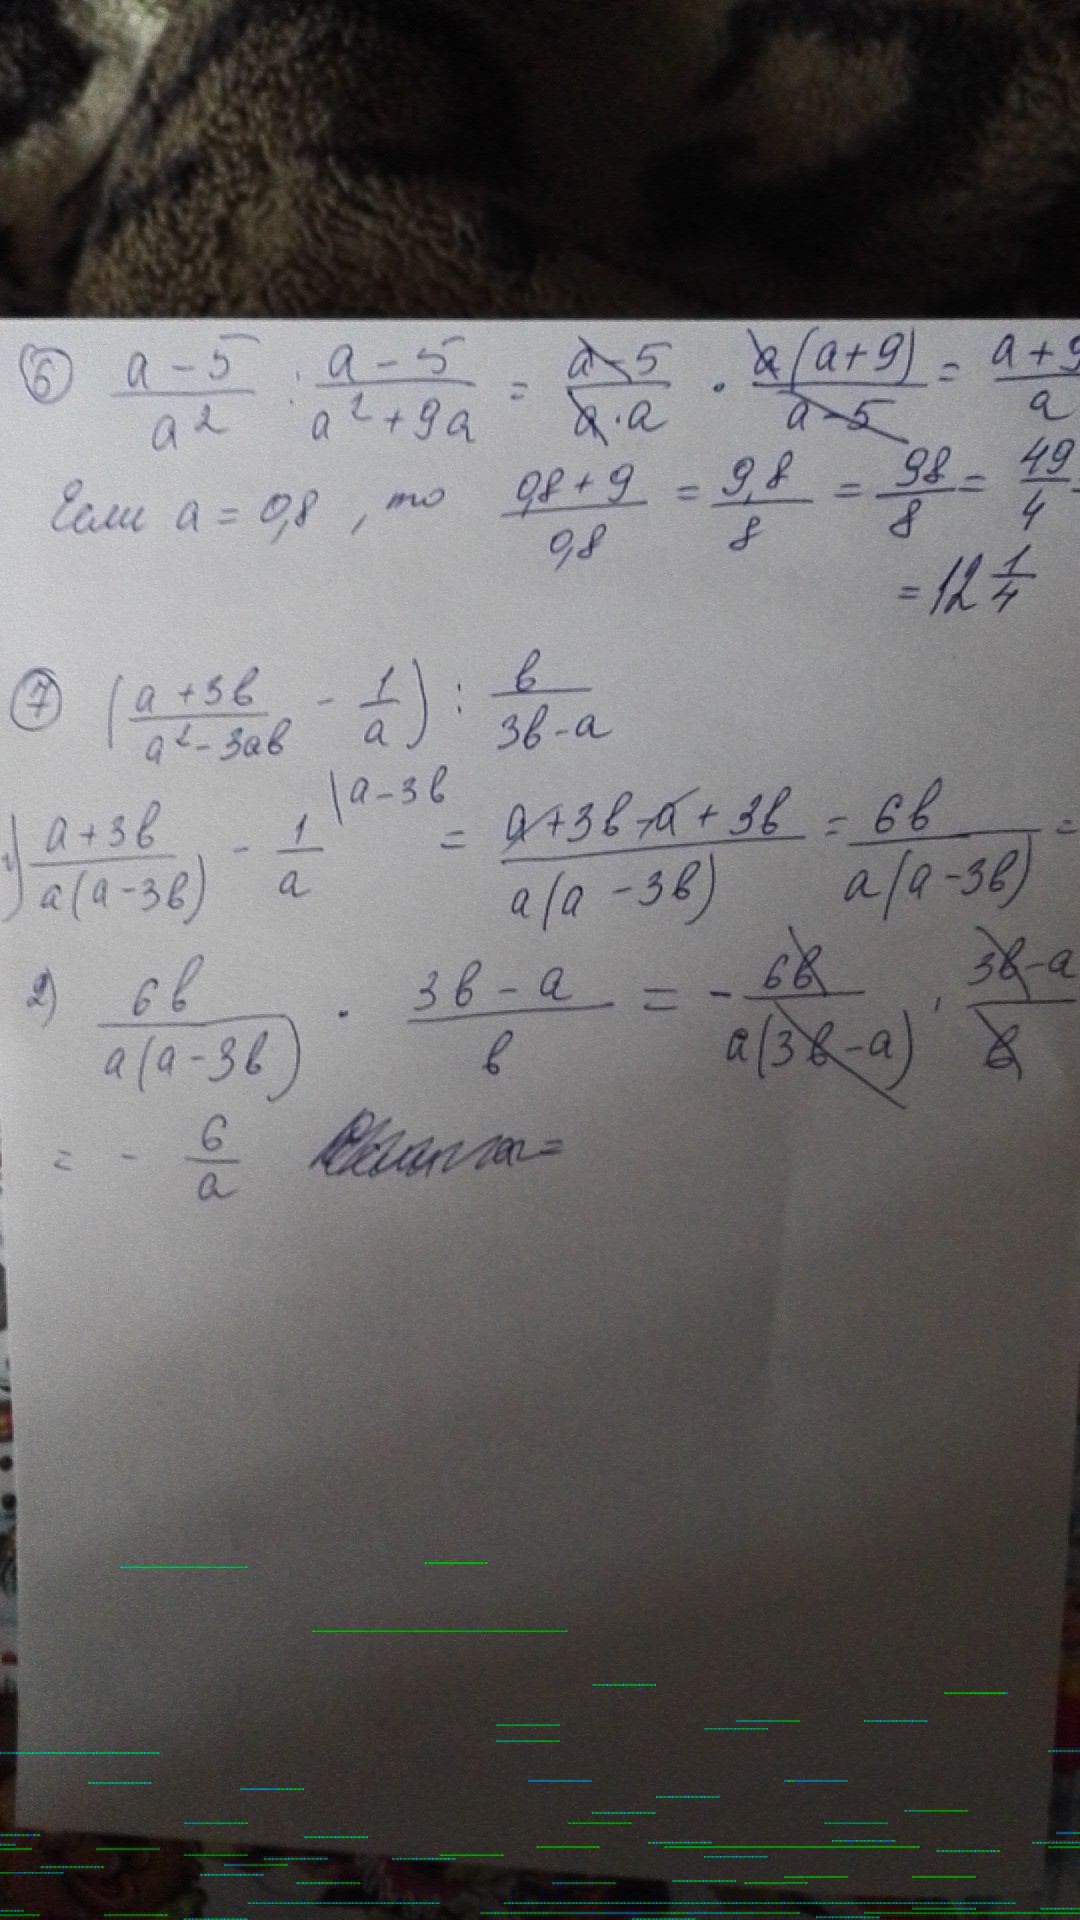 ⑥ (a-5)/a² : (a-5)/(a²+9a) = (a-5)/(a·a) · a(a+9)/(a-5) = (a+9)/a
Если a = 0,8, то (0,8+9)/0,8 = 9,8/8 = 98/8 = 49/4 =
= 12 1/4
⑦ ((a+3в)/(a²-3aв) - 1/a) : в/(3в-a)
1) (a+3в)/(a(a-3в)) - 1/a |a-3в = (a+3в-a+3в)/(a(a-3в)) = 6в/(a(a-3в)) =
2) 6в/(a(a-3в)) · (3в-a)/в = - 6в/(a(3в-a)) · (3в-a)/в
= - 6/a